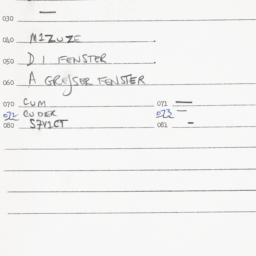 030 —
040 MIZUZE .
050 DI FENSTER .
060 A GROJSER FENSTER
070 CUM 071 —
072 CUDER 073 —
080 SZVICT 081 -